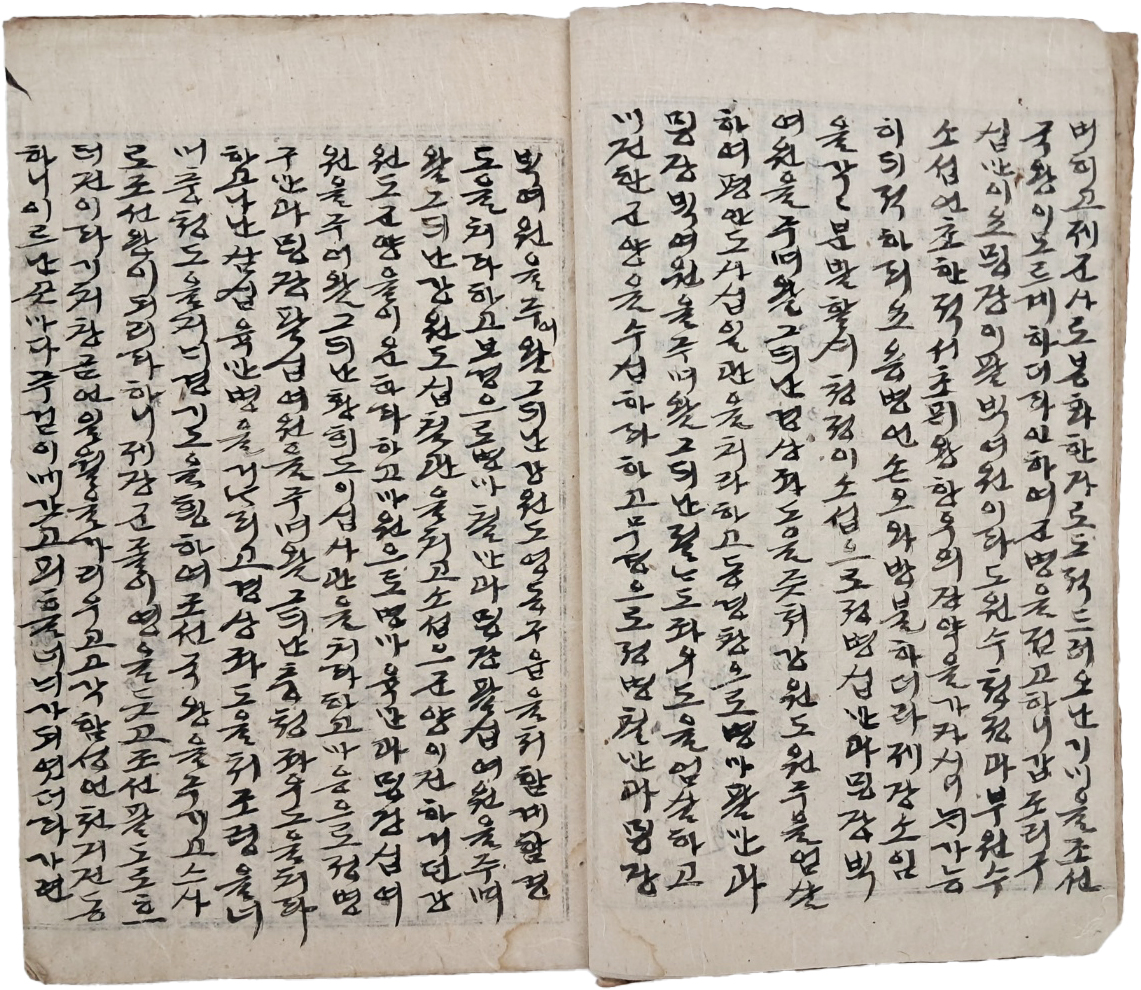 버히고 제군사로 봉화한자로 도적드려오난 기미을 조선
국왕이 모르게 하더라 인하여 군병을 전고하니 갑조리구
십만이요 명장이 팔벽여원이라 도원수 청정과 부원수
소섭언 초한적 서초픠왕 항우의 장약을 가자시며 가능
히 되적하리요 용병언 손오와 방불하더라 제장소임
을 각각 분발할시 청정이 소섭으로 정병 십만과 명장 벽
여원을 주며 왈 그듸난 경상좌도을 즛쳐 강원도 원주를 엄살
하여 평안도 사십일관을 치라 하고 동명황으로 병마 팔만과
명장 벽여원을 주며 왈 그듸난 절나도 좌우도을 엄살하고
니전한 군양을 수십하라 하고 무경으로 정병 칠만과 명장
벽여원을 주어 왈 그듸난 강원도 영동구읍을 쳐 함께 함경
도을 치라 하고 보경으로 병마 칠만과 명장 팔십여원을 주며
왈 그듸난 강원도 십칠관을 치고 소섭으 군양이 전하거던 강
원도 군양을 이운하라 하고 마원으도 병마 육만과 명장 십여
원을 주어 왈 그듸난 황희도 이십사관을 치라 하고 마웅으로 정병
구만과 명장 팔십여원을 주며 왈 그듸난 충청좌우도을 치라
하고 나난 삼십육만병을 거나리고 경상좌도을 쳐 조령을 너
머 충청도을 지너 경기도을 횡하여 조선국왕을 주기고 스사
로 조선왕이 되리라 하니 제장군졸이 영을 듯고 조선 팔도로 흐
터진이라 기치창금언 일월을 가리우고 고각함성언 천지진동
하니 이르난 곳마다 주검이 뫼 갓고 픠 흘너 너가 되엿더라 각현